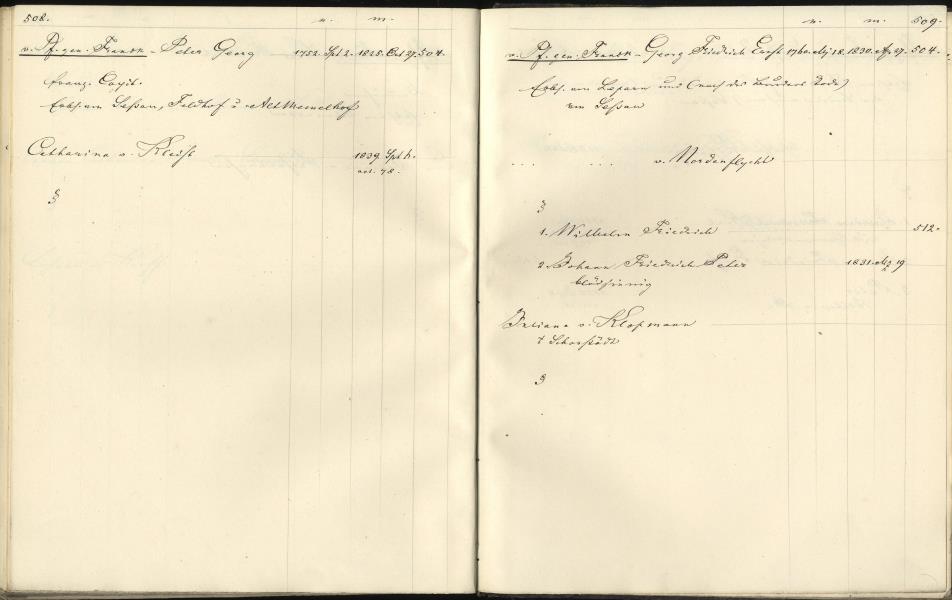 508. n. m.
v. Pf. gen. Frank - Peter Georg 1752. Spt 2. 1825. Oct 27. 504.
franz. Capit.
Erbh. von Seßau, Feldhof u. Alt Memelhof
Catharina v. Kleist 1839. Spt
aet. 78.
§
n. m. 509.
v. Pf. gen. Frank - Georg Friedrich Ernst 1760. 18. 1830. Ap 27. 504.
Erbh. von und (nach des Bruders Tode)
von Seßau
... ... v. Nordenflycht
§
1. Wilhelm Friedrich 512.
2. Johann Friedrich Peter 1831. 19
blödsinnig
Juliana v. Klopmann
†
§